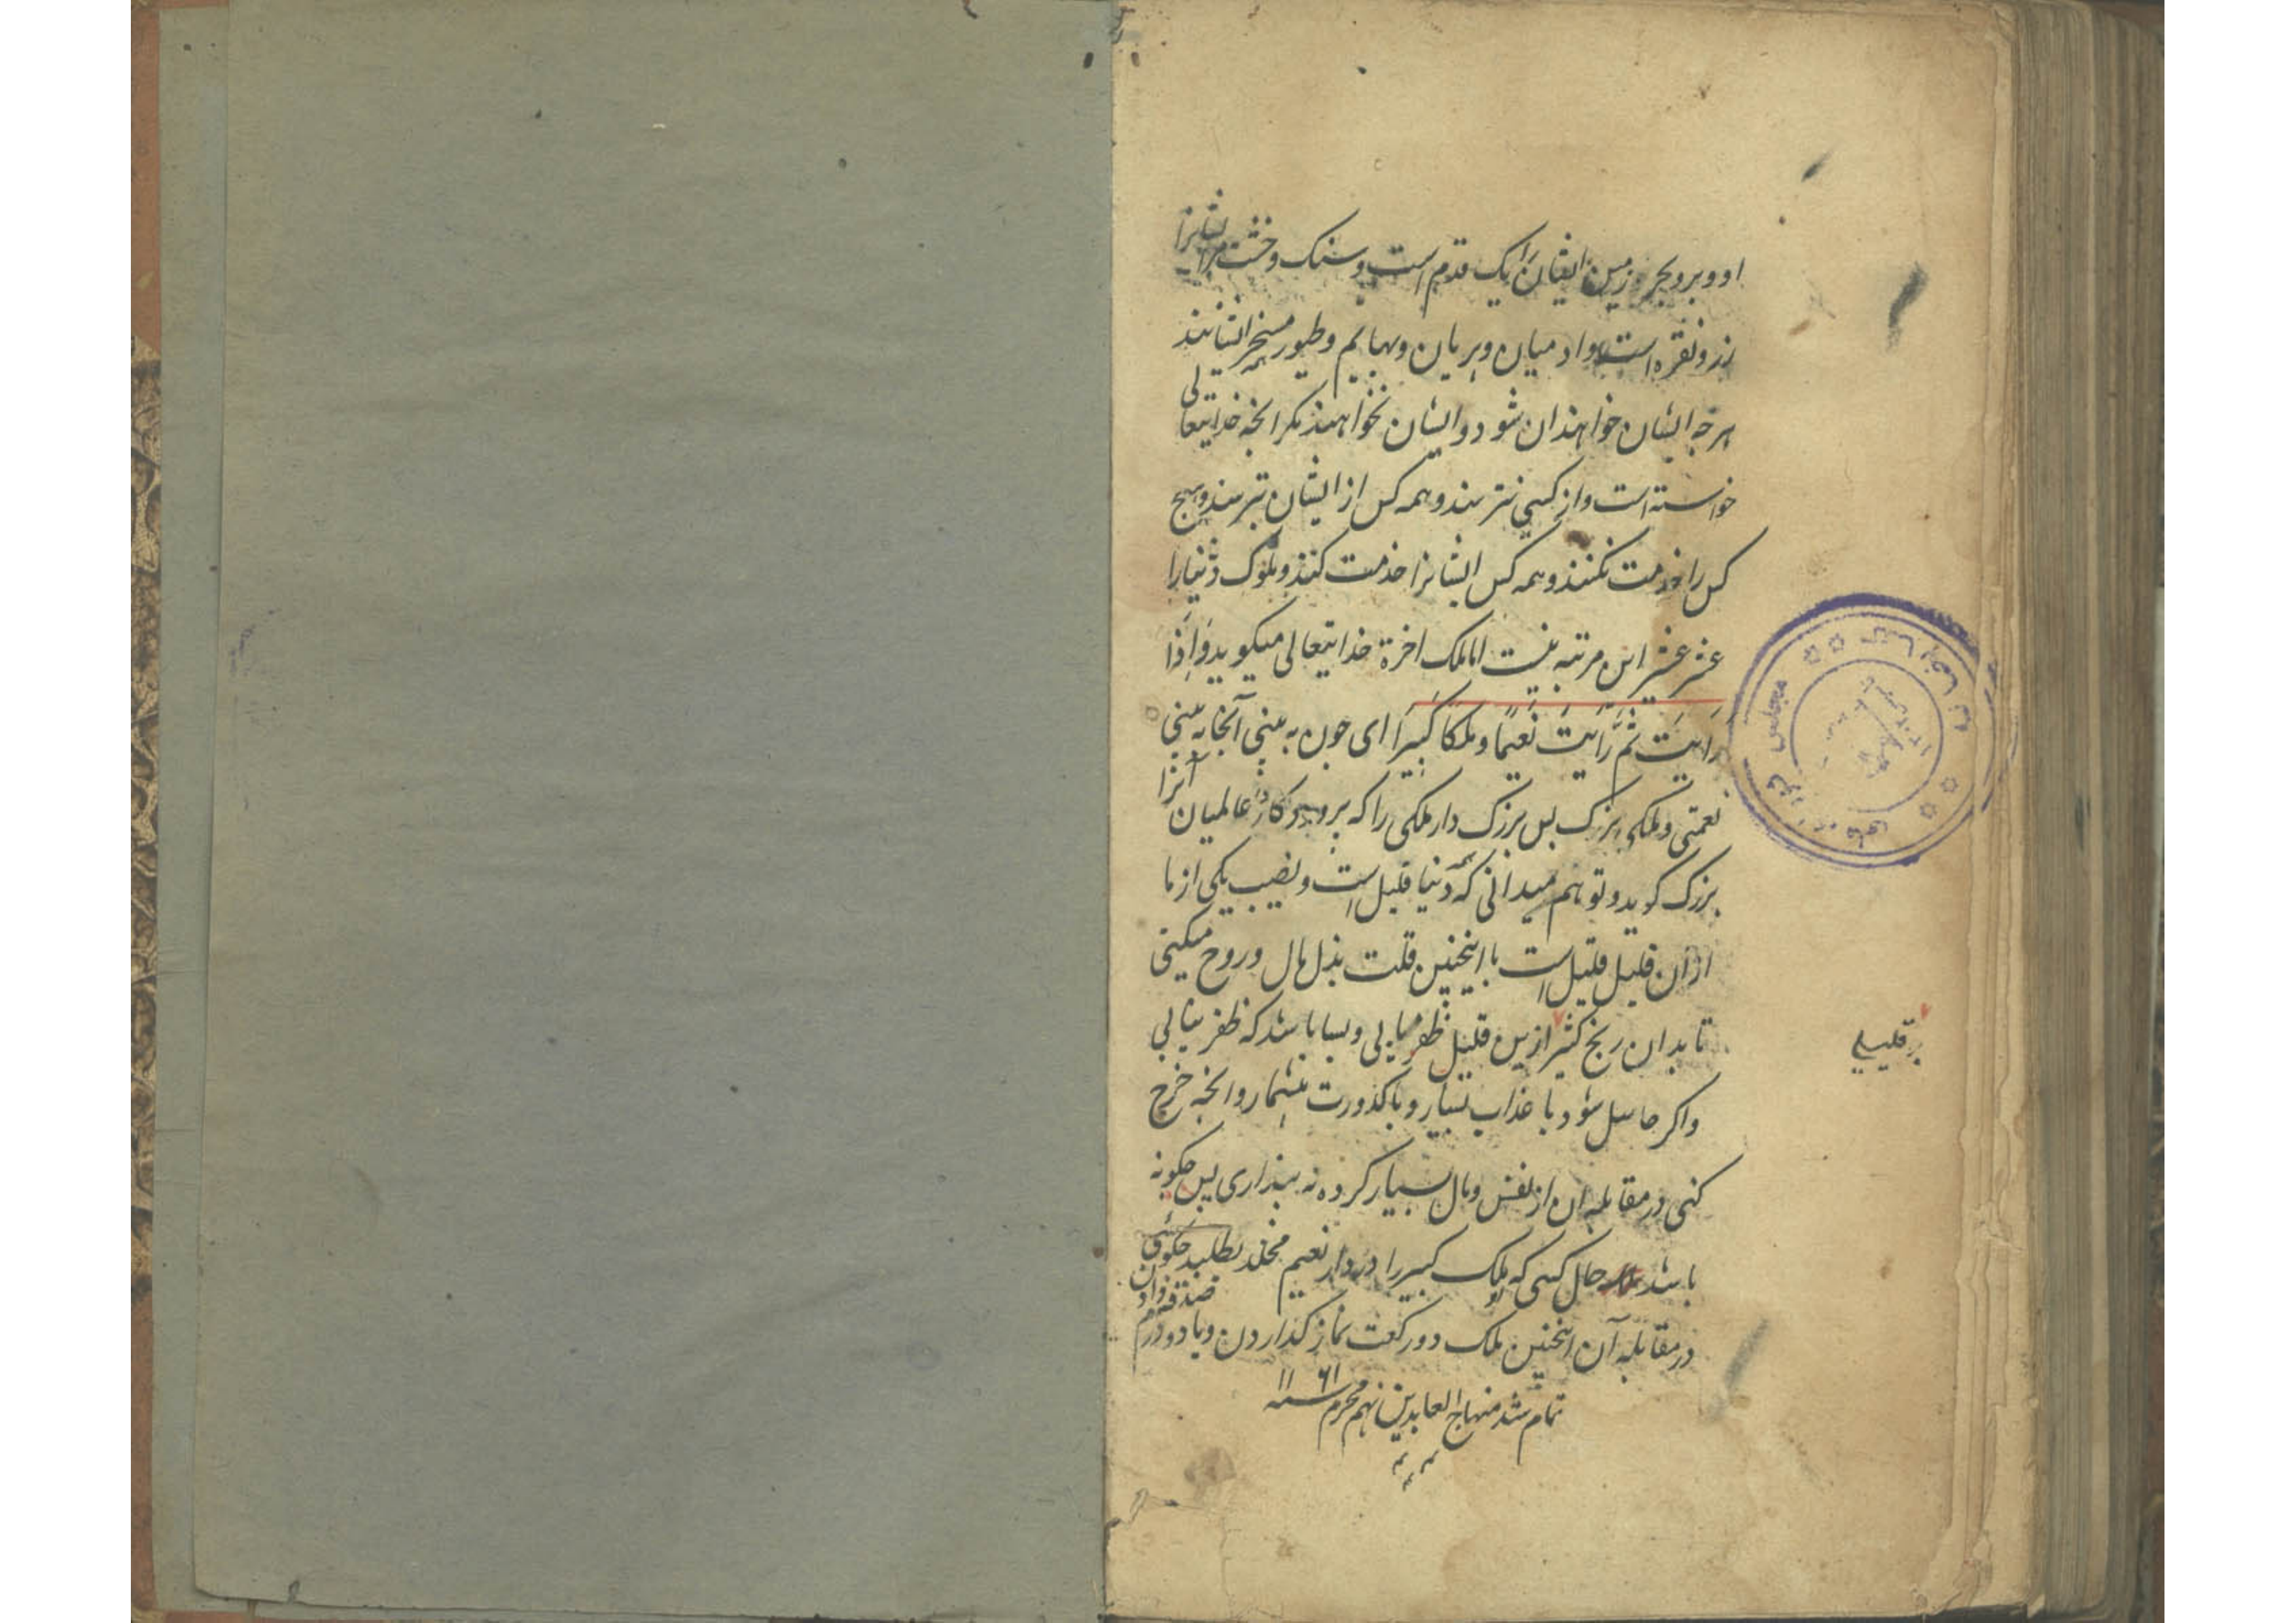 او و بر و بحر و زمین ایشان را یک قدم است و سنک و خشت مر ایشانرا
زر و نقره است و ادمیان و پریان و بهایم و طیور همه مسخر ایشانند
هرچه ایشان خواهند ان شود و ایشان نخواهند مکر انچه خدایتعالی
خواسته است و از کسی نترسند و همه کس از ایشان بترسند و هیچ
کس را خدمت نکنند و همه کس ایشانرا خدمت کنند و ملوک دنیا را
عشر عشیر این مرتبه نیست اما ملک اخرة خدایتعالی میکوید وَاِذَا
رَاَیتَ ثَمَّ رَاَیتَ نَعِیمًا و ملکا کَبِیرًا ای چون به بینی آنجا به بینی
نعمتی و ملکی بزرک پس بزرک دار ملکی را که پروردکار عالمیان آنرا
بزرک کوید و تو هم میدانی که همه دنیا قلیل است و نصیب یکی از ما
ازان قلیل قلیل است با اینچنین قلت بذل مال و روح میکنی
تا بدان رنج کثیر ازین قلیل ظفر میابی و بسا باشد که ظفر نیابی
بر قلیلی
واکر حاصل شود با عذاب بسیار و با کدورت بیشمار و انچه خرج
کنی در مقابله ان از نفس و مال بسیار کرده نه پنداری پس چکونه
باشد حال کسی که ملک کبیر را در دار نعیم مخلد بطلبد چکونه
در مقابله آن اینچنین ملک دو رکعت نماز کذاردن و یا دو درم
صدقه دادن
تمام شد منهاج العابدین نهم محرم سنه ۱۱۶۱